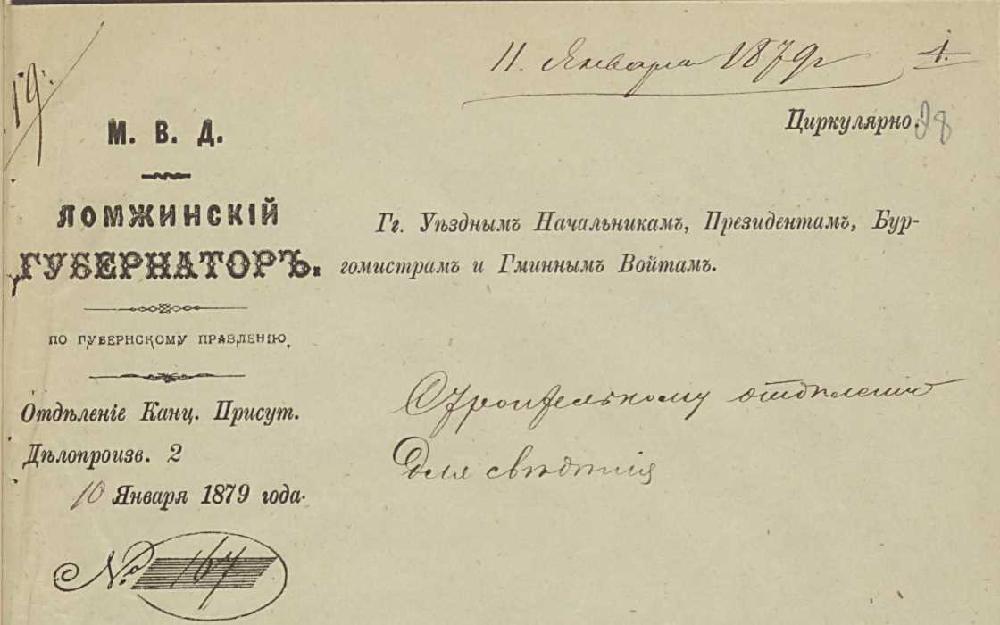 19.
11. Января 1879 г
1.
Циркулярно.
98
М. В. Д.
ЛОМЖИНСКІЙ
ГУБЕРНАТОРЪ.
ПО ГУБЕРНСКОМУ ПРАВЛЕНІЮ.
Отдѣленіе Канц. Присут.
Дѣлопроизв. 2
10 Января 1879 года.
№ 167
Гг. Уѣзднымъ Начальникам, Президентам, Бур-
гомистрамъ и Гминнымъ Войтам.
Строительному отдѣленію
для свѣдѣнія